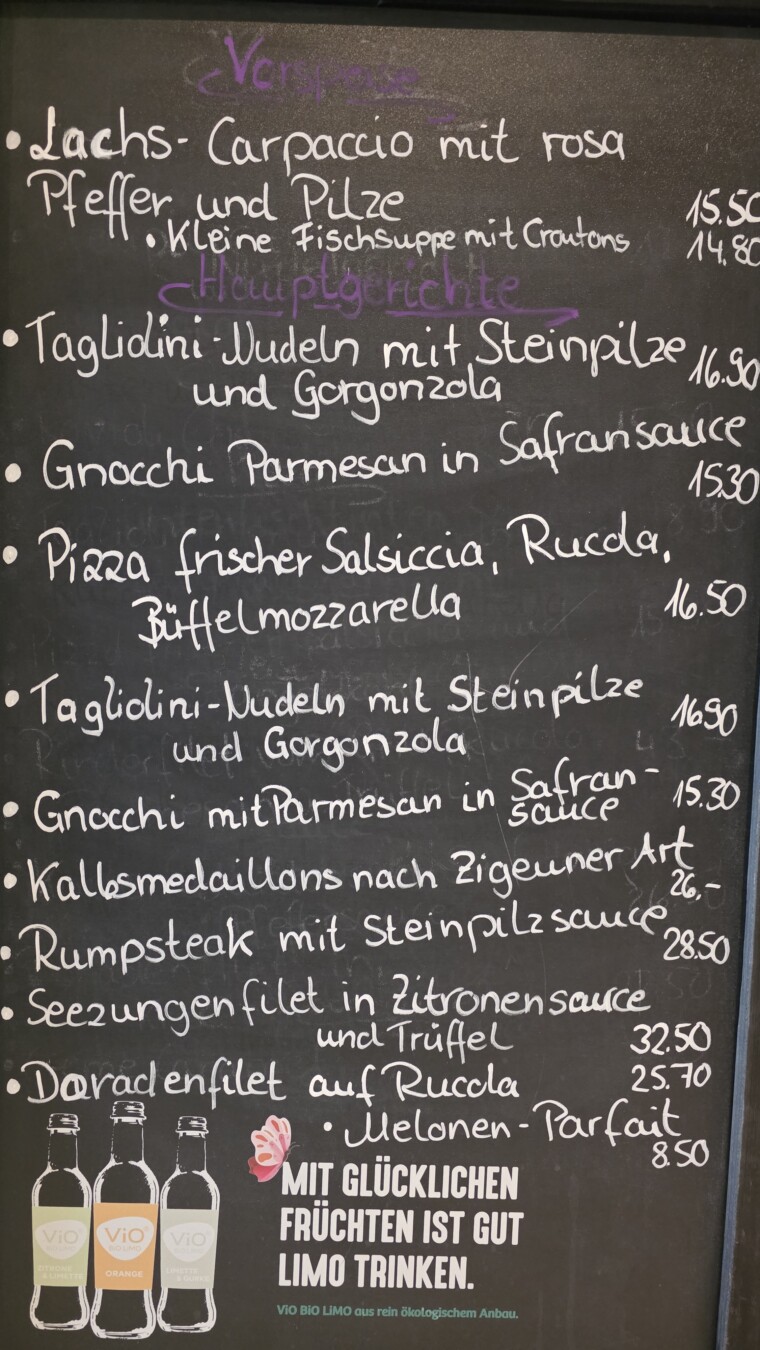 Vorspeise
• Lachs- Carpaccio mit rosa
Pfeffer und Pilze 15.50
• Kleine Fischsuppe mit Croutons 14.80
Hauptgerichte
• Tagliolini-Nudeln mit Steinpilze 16.90
und Gorgonzola
• Gnocchi Parmesan in Safransauce
15.30
• Pizza frischer Salsiccia, Rucola,
Büffelmozzarella 16.50
• Tagliolini-Nudeln mit Steinpilze 16.90
und Gorgonzola
• Gnocchi mit Parmesan in Safran- 15.30
sauce
• Kalbsmedaillons nach Zigeuner Art
26,-
• Rumpsteak mit Steinpilzsauce 28.50
• Seezungenfilet in Zitronensauce
und Trüffel 32.50
• Doradenfilet auf Rucola 25.70
• Melonen-Parfait
8.50
MIT GLÜCKLICHEN
FRÜCHTEN IST GUT
LIMO TRINKEN.
ViO BiO LiMO aus rein ökologischem Anbau.
ViO
BiO LiMO
ZITRONE
& LIMETTE
ViO
BiO LiMO
ORANGE
ViO
LIMETTE